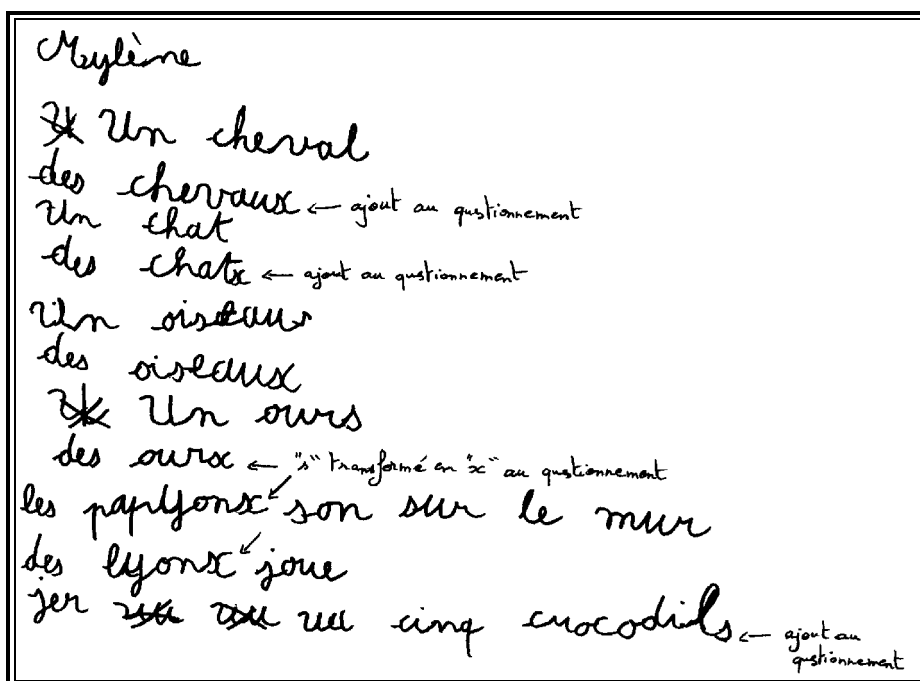 Mylène
Un cheval
des chevaux ← ajout au qustionnement
Un chat
des chatx ← ajout au qustionnement
Un oiseaus
des oiseaux
Un ours
des ourx ← "s" transformé en "x" au qustionnement
les paplyonx son sur le mur
des lyonx joue
jer vu cinq crocodils ← ajout au
qustionnement